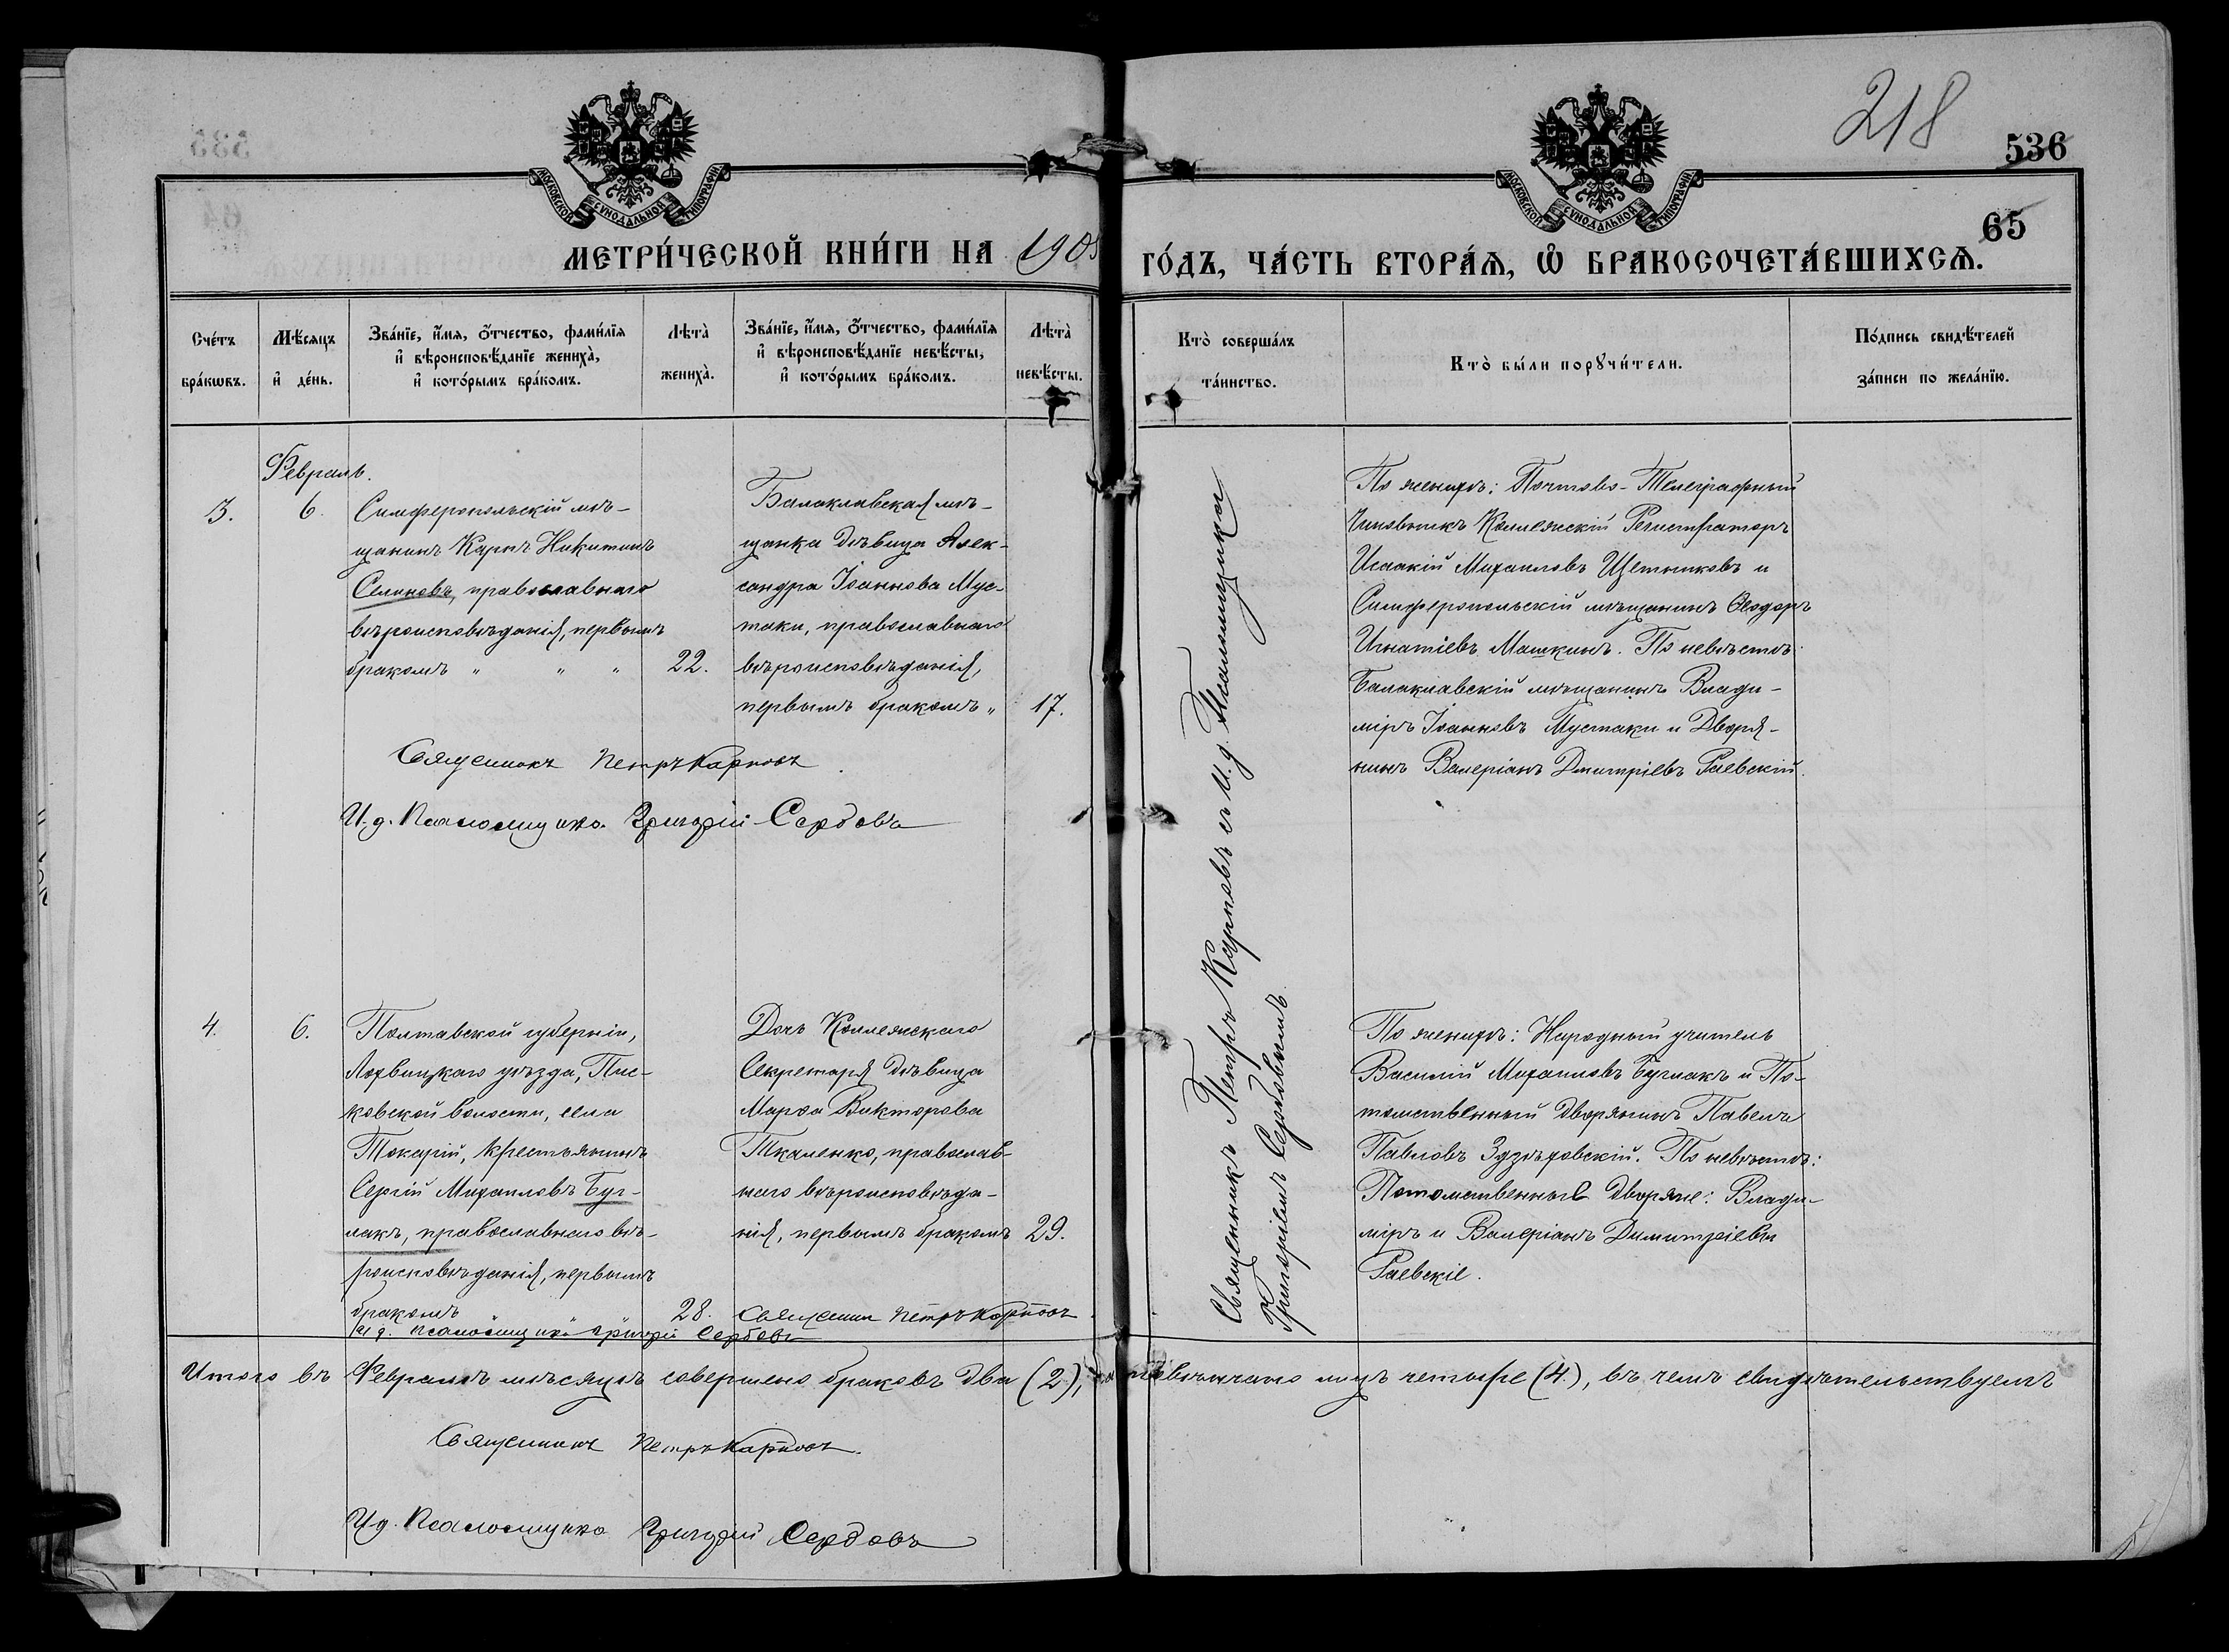 218
536
65
МОСКОВСКОЙ СУНОДАЛЬНОЙ ТИПОГРАФІИ
МОСКОВСКОЙ СУНОДАЛЬНОЙ ТИПОГРАФІИ
МЕТРИ́ЧЕСКОЙ КНИ́ГИ НА 1905 ГО́ДЪ, ЧА́СТЬ ВТОРА́Ѧ, Ѡ БРАКОСОЧЕТА́ВШИХСѦ.
Сче́тъ бра́кѡвъ.
Мѣ́сяцъ и де́нь.
Зва́нїе, и́мя, о́тчество, фами́лїя и вѣроисповѣ́данїе жениха̀, и кото́рымъ бра́комъ.
Лѣта̀ жениха̀.
Зва́нїе, и́мя, о́тчество, фами́лїя и вѣроисповѣ́данїе невѣ́сты, и кото́рымъ бра́комъ.
Лѣта̀ невѣ́сты.
Кто̀ соверша́лъ та́инство.
Кто̀ бы́ли порꙋчи́тели.
По́дпись свидѣ́телей за́писи по жела́нїю.
Февраль.
3.
6.
Симферопольскій мѣ-
щанинъ Карпъ Никитинъ
Селиновъ, православнаго
вѣроисповѣданія, первымъ
бракомъ " " " 22.
Балаклавская мѣ-
щанка дѣвица Алек-
сандра Іоаннова Мус-
таки, православнаго
вѣроисповѣданія,
первымъ бракомъ " 17.
Священникъ Петръ Карповъ.
И. д. Псаломщика Григорій Сербовъ
Священникъ Петръ Карповъ съ И. д. Псаломщика
Григоріемъ Сербовымъ.
По женихѣ: Почтово-Телеграфный
Чиновникъ Коллежскій Регистраторъ
Исаакій Михаиловъ Щетниковъ и
Симферопольскій мѣщанинъ Ѳеодоръ
Игнатіевъ Машкинъ. По невѣстѣ:
Балаклавскій мѣщанинъ Влади-
міръ Іоанновъ Мустаки и Дворя-
нинъ Валеріанъ Димитріевъ Раевскій.
4.
6.
Полтавской губерніи,
Лохвицкаго уѣзда, Пис-
ковской волости, села
Токарій, крестьянинъ
Сергій Михаиловъ Буг-
лакъ, православнаго вѣ-
роисповѣданія, первымъ
бракомъ " 28.
Дочь Коллежскаго
Секретаря дѣвица
Марѳа Викторова
Ткаленко, православ-
наго вѣроисповѣда-
нія, первымъ бракомъ 29.
Священник Петръ Карповъ.
И. д. Псаломщика Григорій Сербовъ
По женихѣ: Народный учитель
Василій Михаиловъ Буглакъ и По-
томственный Дворянинъ Павелъ
Павловъ Здзѣховскій. По невѣстѣ:
Потомственные Дворяне: Влади-
міръ и Валеріанъ Димитріевы
Раевскіе.
Итого въ Февралѣ мѣсяцѣ совершено браковъ два (2), повѣнчано лицъ четыре (4), въ чемъ свидѣтельствуемъ
Священникъ Петръ Карповъ.
И. д. Псаломщика Григорій Сербовъ